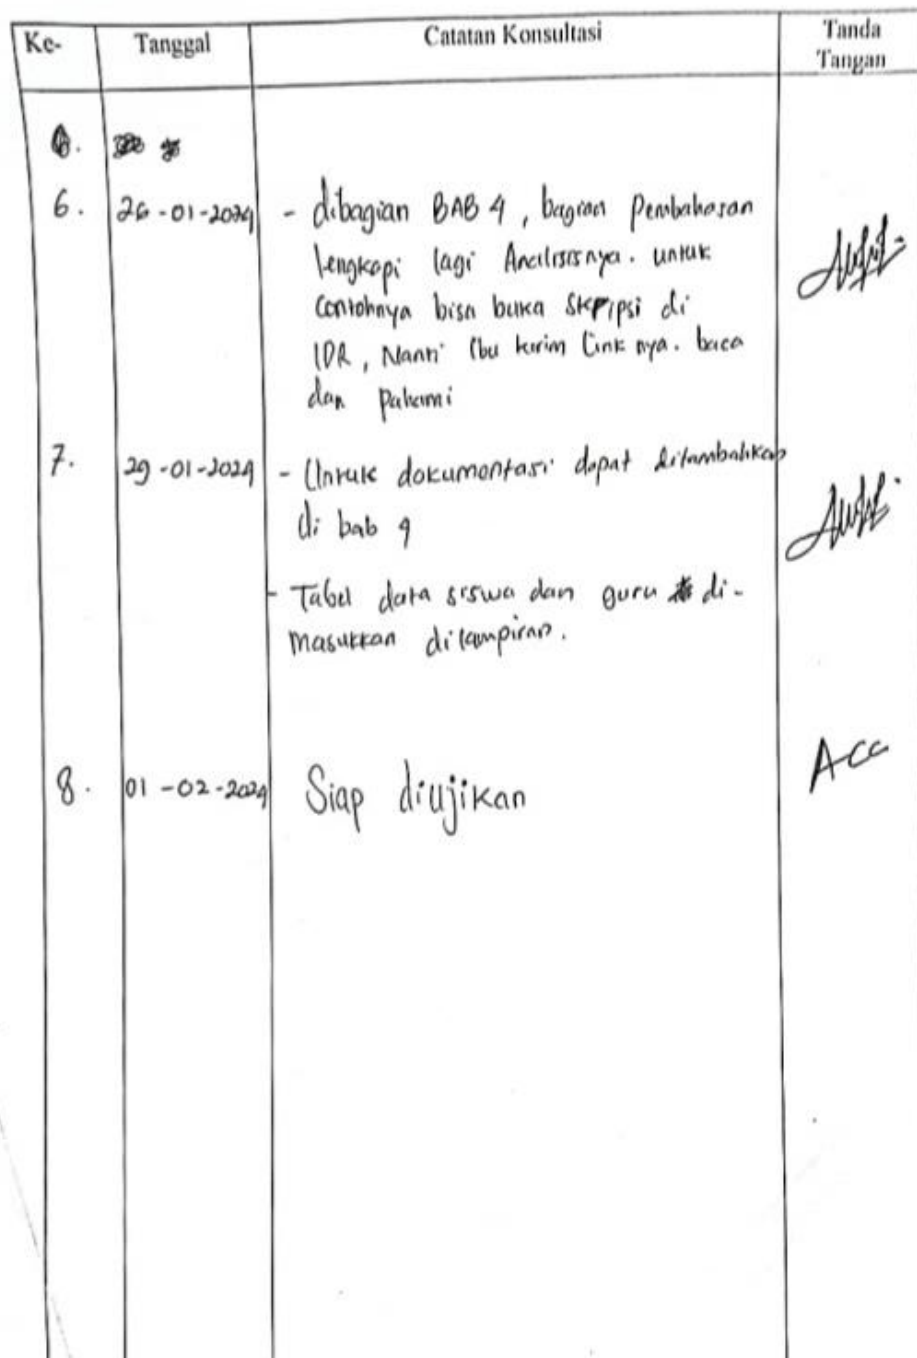 Ke- Tanggal Catatan Konsultasi Tanda
Tangan
6. 26-01-2024 - dibagian BAB 4, bagian Pembahasan
lengkapi lagi Analisisnya. untuk
Contohnya bisa buka Skripsi di
IDR, Nanti Ibu kirim Link nya. baca
dan pahami
7. 29-01-2024 - Untuk dokumentasi dapat ditambahkan
di bab 4
- Tabel data siswa dan guru di-
masukkan dilampiran.
8. 01-02-2024 Siap diujikan Acc